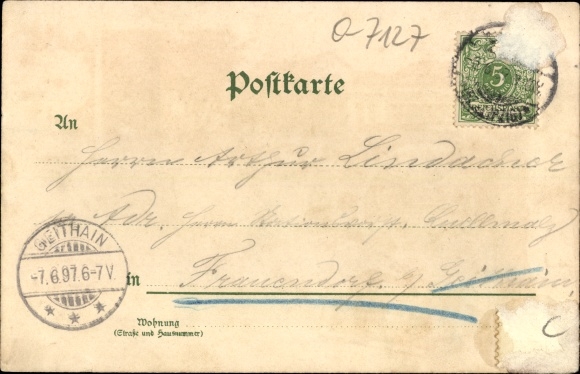 O-7127
5
Postkarte
An
Herrn Arthur Lindacher
Adr. Herrn
GEITHAIN
-7.6.97.6-7V.
in Frauendorf b/ Geithain
Wohnung
(Straße und Hausnummer)
C